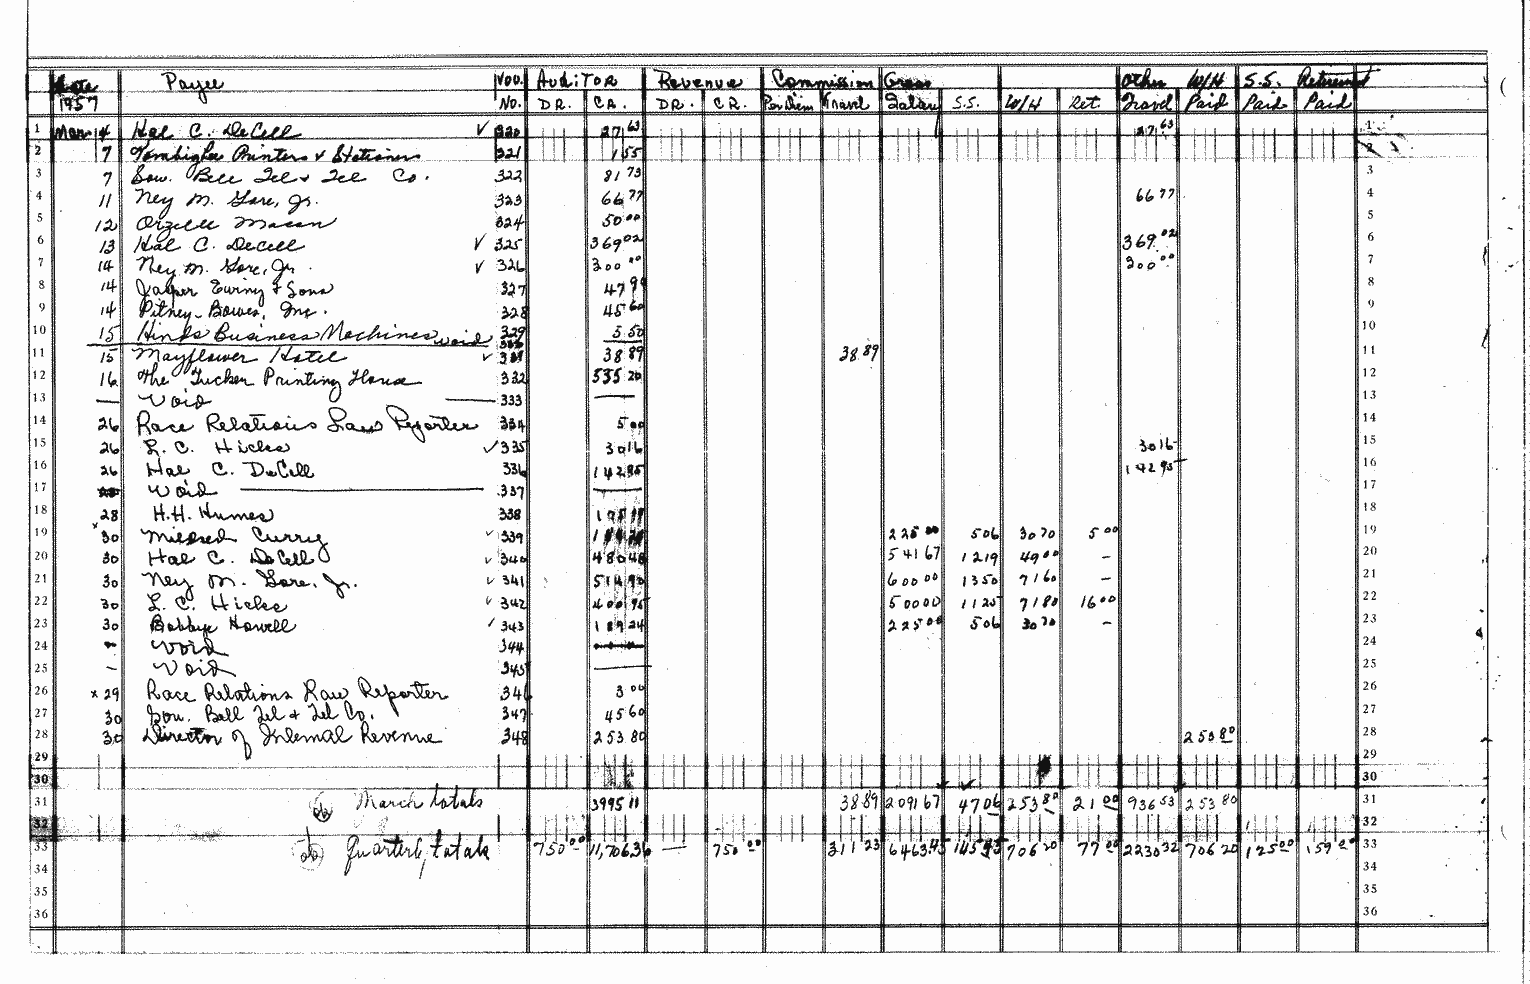 Date Payee Vou. Auditor Revenue Commission Gross Other W/H S.S. Retirement
1957 No. DR. CR. DR. CR. Per Diem Travel Salary S.S. W/H Ret. Travel Paid Paid Paid
1 Mar 14 Hal C. DeCell ✓ 320 27 63 27 63 1
2 7 Tombigbee Printers & Stationers 321 1 55 2
3 7 Sou. Bell Tel & Tel Co. 322 81 73 3
4 11 Ney M. Gore, Jr. 323 66 77 66 77 4
5 12 Orzelle Mason 324 50 00 5
6 13 Hal C. Decell ✓ 325 369 02 369 02 6
7 14 Ney M. Gore, Jr. ✓ 326 300 00 300 00 7
8 14 Jasper Ewing & Sons 327 47 99 8
9 14 Pitney-Bowes, Inc. 328 45 60 9
10 15 Hinds Business Machines 329 5 50 10
void 330
11 15 Mayflower Hotel ✓ 331 38 89 38 89 11
12 16 The Tucker Printing House 332 535 20 12
13 — Void — 333 — 13
14 26 Race Relations Law Reporter 334 5 00 14
15 26 L. C. Hicks ✓ 335 30 16 30 16 15
16 26 Hal C. DeCell 336 142 95 142 95 16
17 Void — 337 — 17
18 28 H.H. Humes 338 18
19 x 30 Mildred Curry ✓ 339 225 00 5 06 30 70 5 00 19
20 30 Hal C. DeCell ✓ 340 480 48 541 67 12 19 49 00 – 20
21 30 Ney M. Gore, Jr. ✓ 341 514 90 600 00 13 50 71 60 – 21
22 30 L. C. Hicks ✓ 342 400 95 500 00 11 25 71 80 16 00 22
23 30 Bobbye Howell ✓ 343 189 24 225 00 5 06 30 70 – 23
24 – Void 344 — 24
25 – Void 345 — 25
26 x 29 Race Relations Law Reporter 346 3 00 26
27 30 Sou. Bell Tel & Tel Co. 347 45 60 27
28 30 Director of Internal Revenue 348 253 80 253 80 28
29 29
30 30
31 March totals 3995 11 38 89 2091 67 47 06 253 80 21 00 936 53 253 80 31
32 32
33 Quarterly totals 750 00 11,706 36 — 750 00 311 23 6463 45 706 20 77 00 2230 32 706 20 125 00 159 00 33
34 34
35 35
36 36